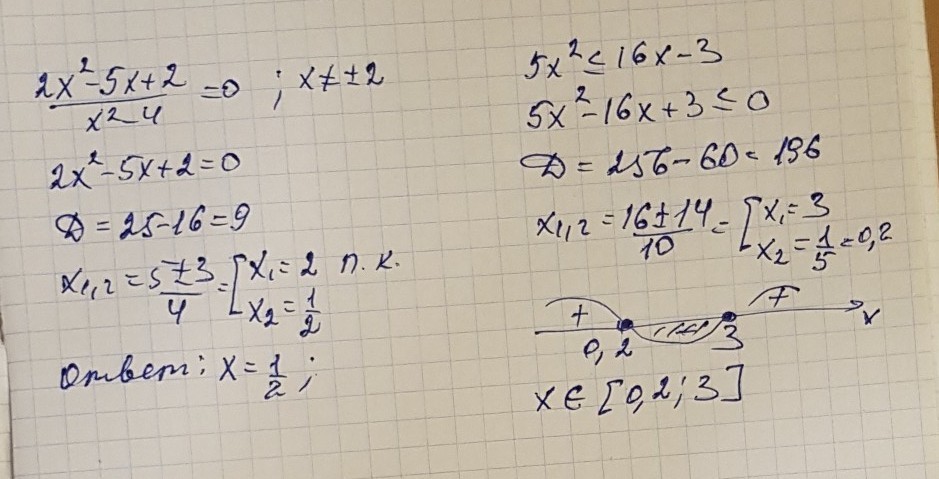 2x²-5x+2 / x²-4 = 0 ; x≠±2
2x²-5x+2=0
D=25-16=9
x₁,₂ = 5±3 / 4 = [x₁=2 п.к.
x₂=1/2
Ответ: x=1/2;
5x²≤16x-3
5x²-16x+3≤0
D=256-60=196
x₁,₂ = 16±14 / 10 = [x₁=3
x₂=1/5=0,2
+ +
0,2 3 x
x∈[0,2;3]